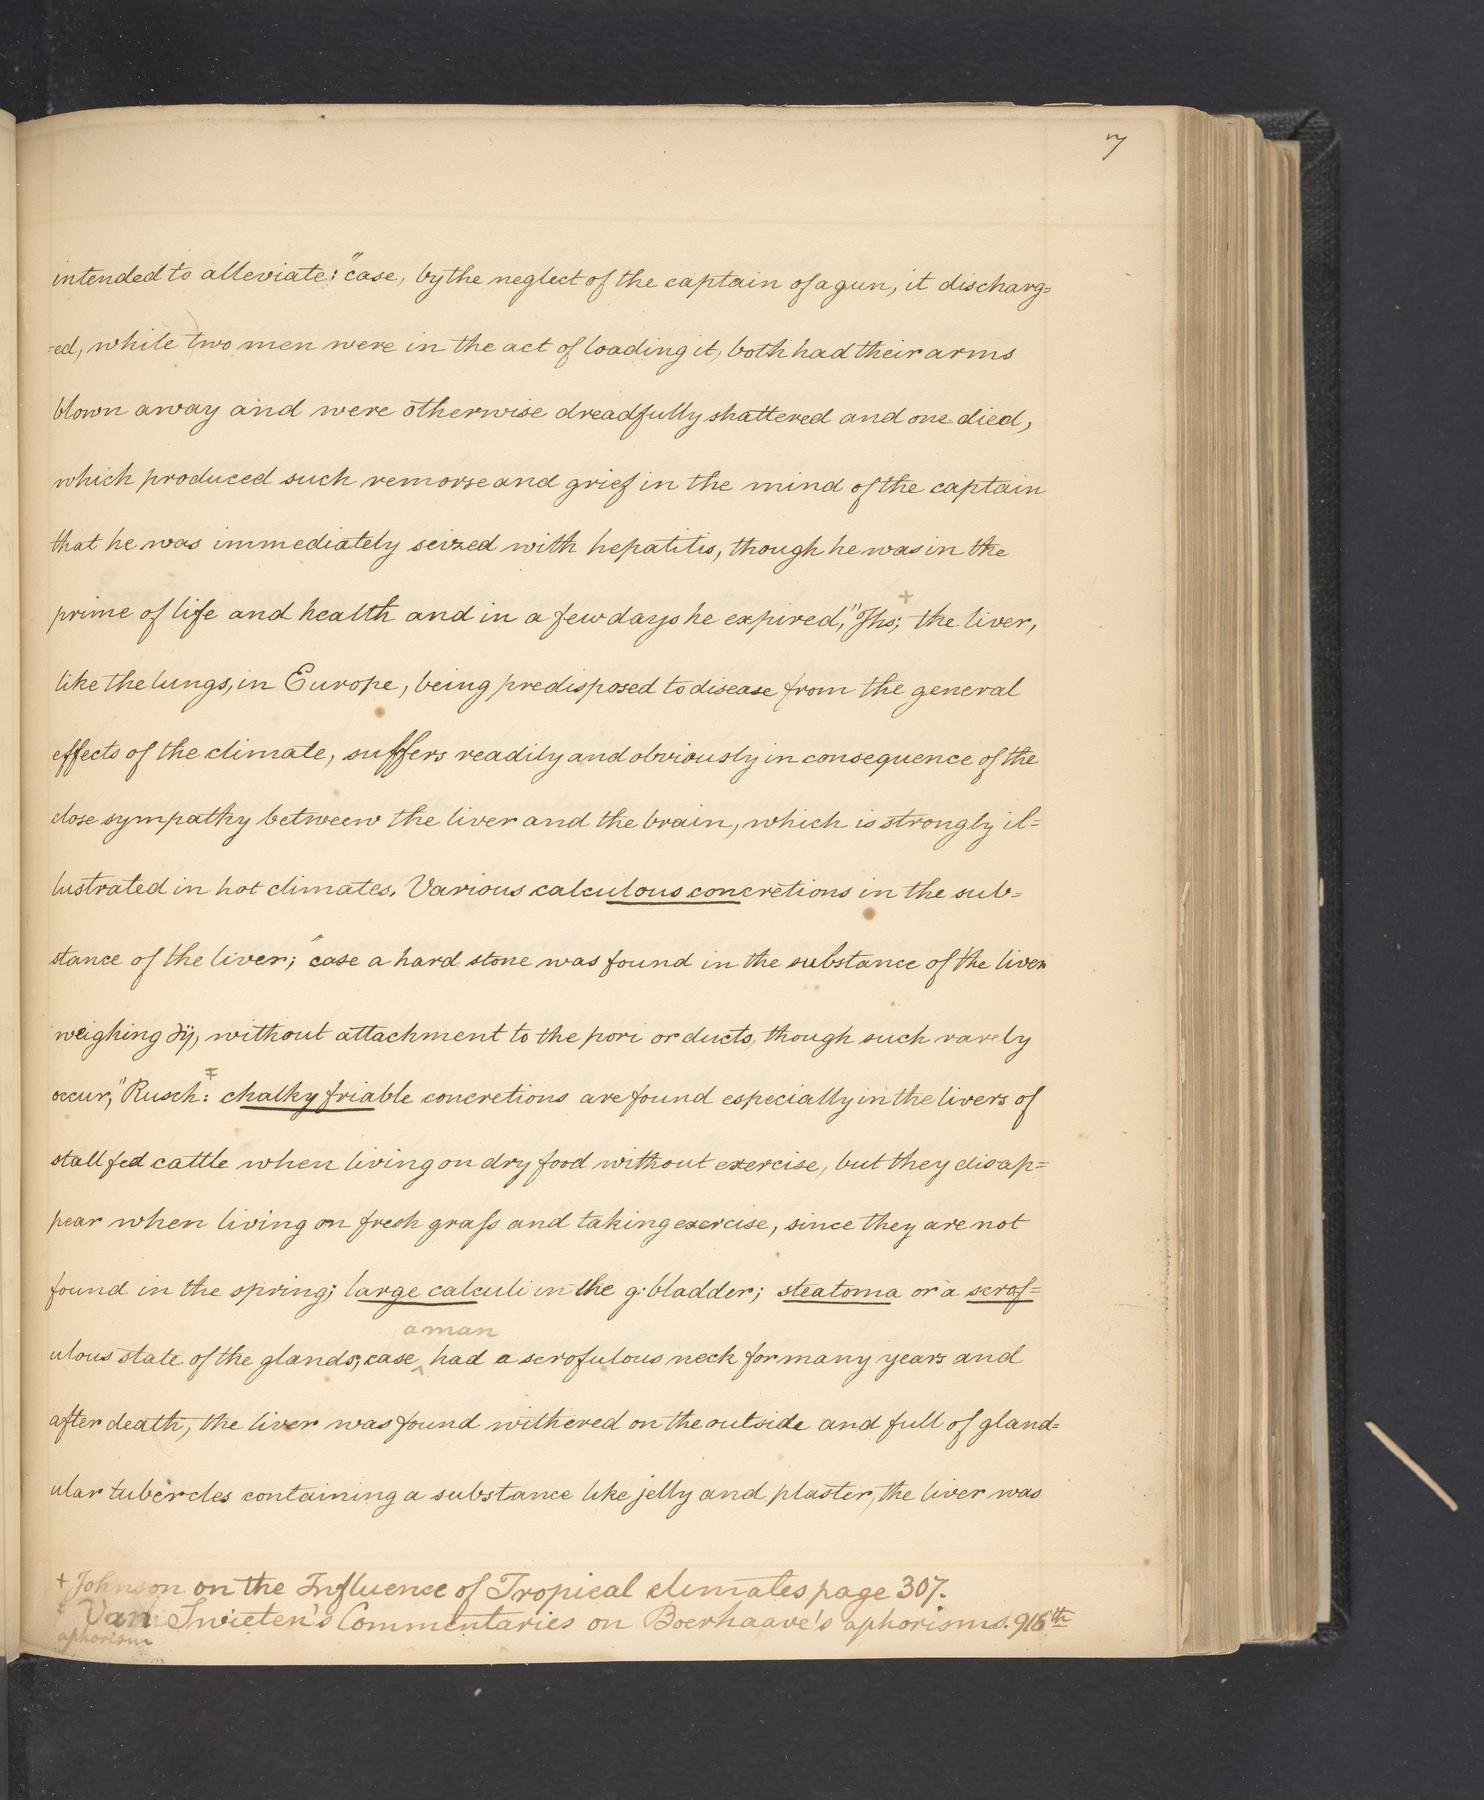 7
intended to alleviate: "case, by the neglect of the captain of a gun, it discharg=
=ed, while two men were in the act of loading it, both had their arms
blown away and were otherwise dreadfully shattered and one died,
which produced such remorse and grief in the mind of the captain
that he was immediately seized with hepatitis, though he was in the
prime of life and health and in a few days he expired," Jhs; + the liver,
like the lungs, in Europe, being predisposed to disease from the general
effects of the climate, suffers readily and obviously in consequence of the
close sympathy between the liver and the brain, which is strongly il=
lustrated in hot climates. Various calculous concretions in the sub=
stance of the liver; "case a hard stone was found in the substance of the liver
weighing ʒij, without attachment to the pori or ducts, though such rarely
occur," Rusch: ‡ chalky friable concretions are found especially in the livers of
stall fed cattle when living on dry food without exercise, but they disap=
pear when living on fresh grass and taking exercise, since they are not
found in the spring; large calculi in the g: bladder; steatoma or a scrof=
a man
ulous state of the glands; case ^ had a scrofulous neck for many years and
after death, the liver was found withered on the outside and full of gland=
ular tubercles containing a substance like jelly and plaster, the liver was
+ Johnson on the Influence of Tropical climates page 307.
‡ Van Swieten's Commentaries on Boerhaave's aphorisms. 918th
aphorism